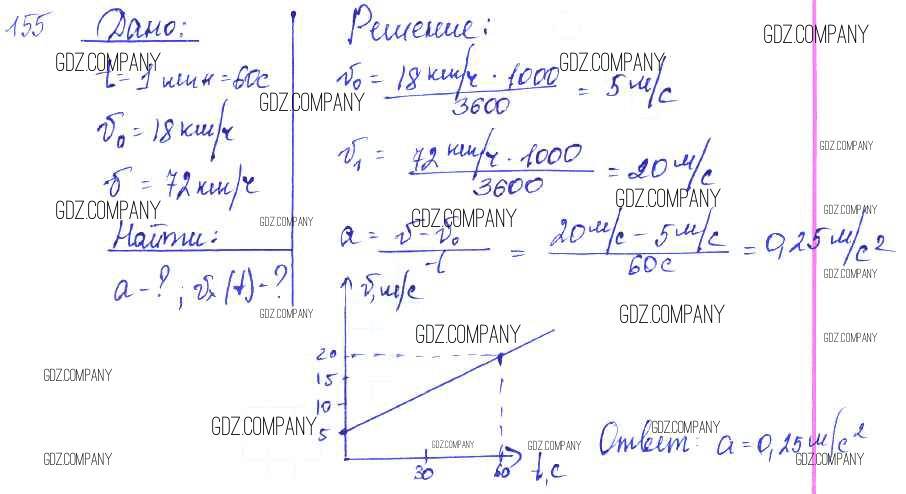 155 Дано:
t = 1 мин = 60с
v₀ = 18 км/ч
v = 72 км/ч
Найти:
a - ? ; vₓ(t) - ?
Решение:
v₀ = 18 км/ч · 1000 / 3600 = 5 м/с
v₁ = 72 км/ч · 1000 / 3600 = 20 м/с
a = v - v₀ / t = 20 м/с - 5 м/с / 60с = 0,25 м/с²
v, м/с
20
15
10
5
30 60 t, с
Ответ: a = 0,25 м/с²
GDZ.COMPANY
GDZ.COMPANY
GDZ.COMPANY
GDZ.COMPANY
GDZ.COMPANY
GDZ.COMPANY
GDZ.COMPANY
GDZ.COMPANY
GDZ.COMPANY
GDZ.COMPANY
GDZ.COMPANY
GDZ.COMPANY
GDZ.COMPANY
GDZ.COMPANY
GDZ.COMPANY
GDZ.COMPANY
GDZ.COMPANY
GDZ.COMPANY
GDZ.COMPANY
GDZ.COMPANY
GDZ.COMPANY
GDZ.COMPANY